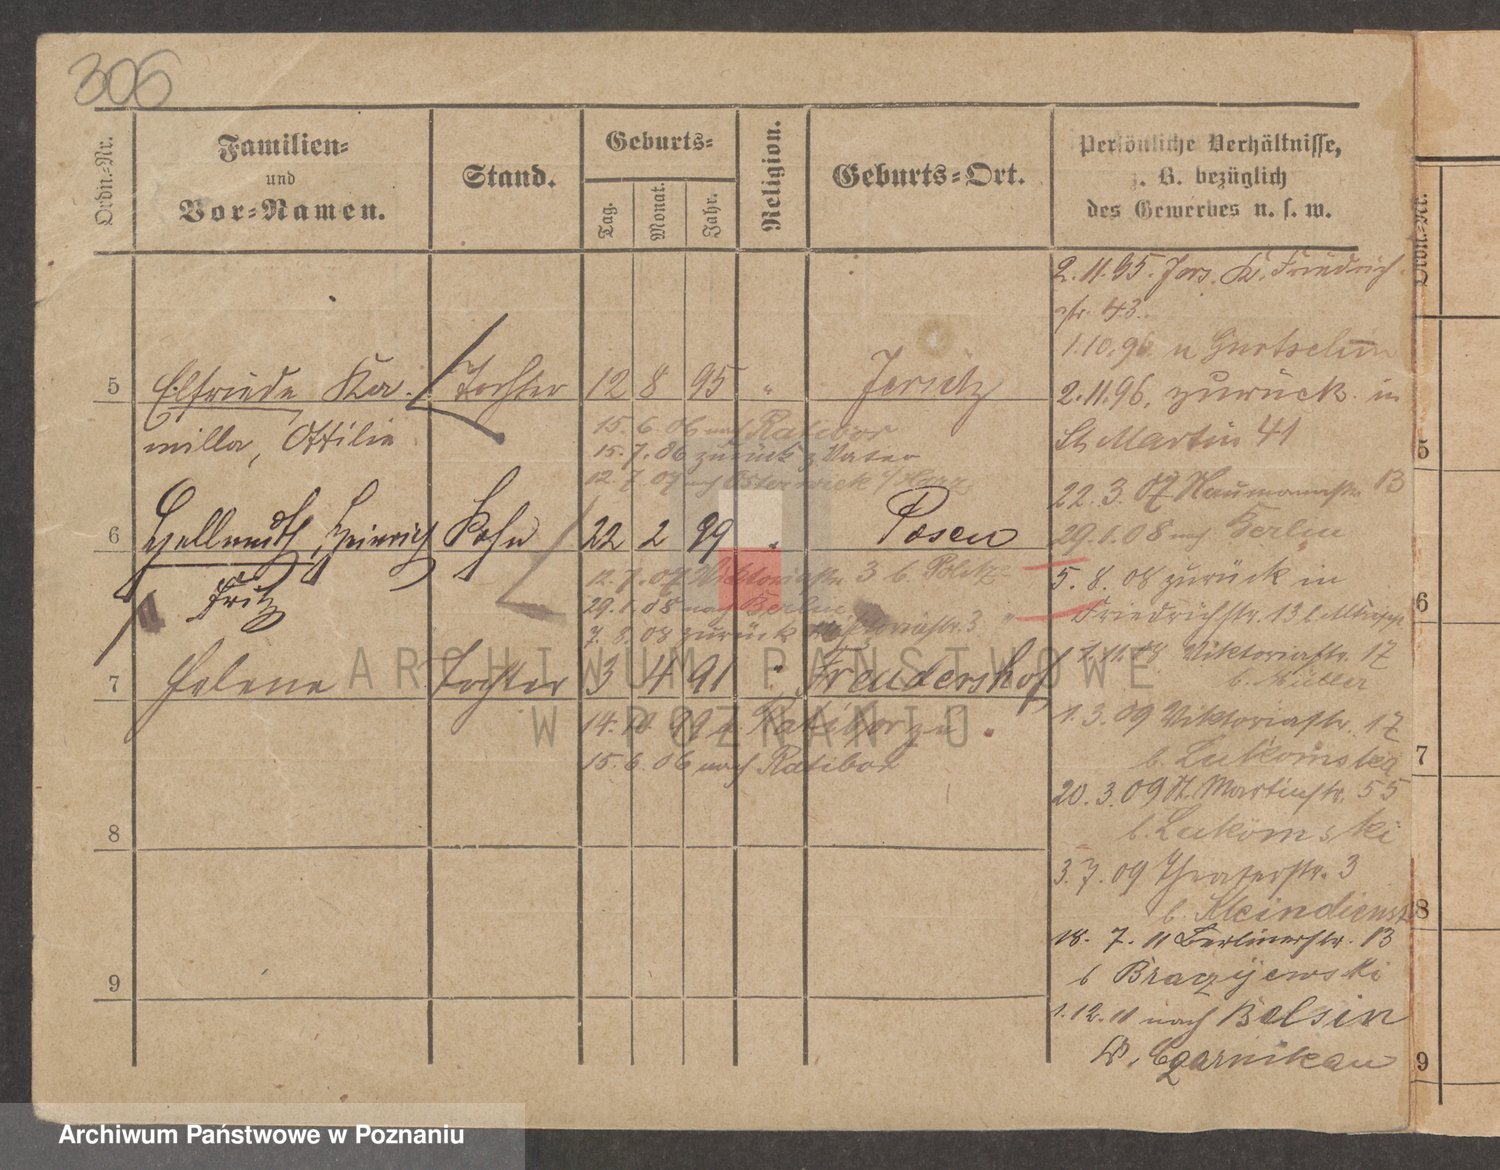 306
Ordn.-Nr.
Familien-
und
Vor-Namen.
Stand.
Geburts-
Tag.
Monat.
Jahr.
Religion.
Geburts-Ort.
Persönliche Verhältnisse,
z. B. bezüglich
des Gewerbes u. s. w.
2. 11. 95. Jers. Kr. Friedrich
str. 43.
1. 10. 96 n Gurtschin
5 Elfriede Ka- Tochter 12 8 95 " Jersitz
2. 11. 96. zurück in
milla, Ottilie
St Martin 41
15. 6. 06 nach Ratibor
15. 7. 06 zurück z Vater
12. 7. 07 nach Osterwieck i/Harz
22. 3. 07 Naumannstr. 13
6 Hellmuth, Heinrich Sohn 22 2 99 " Posen
Fritz
29. 1. 08 nach Berlin
12. 7. 07 Viktoriastr 3 b.
29. 1. 08 nach Berlin
7. 8. 08 zurück Viktoriastr. 3
5. 8. 08 zurück in
Friedrichstr. 13
7 Helene Tochter 3 4 91 " Freudershof
Viktoriastr. 17
b. Müller
14. 10. 99 v. Ratibor zu
15. 6. 06 nach Ratibor
1. 3. 09 Viktoriastr. 17
b. Lukomska
20. 3. 09 St. Martinstr. 55
b. Lukomski
8
3. 7. 09 Theaterstr. 3
b. Kleindienst
18. 7. 11 Berlinerstr. 13
b Brazijewski
9
1. 12. 11 nach Belsin
Kr. Czarnikau
Ordn.-Nr.
5
6
7
8
9
ARCHIWUM PAŃSTWOWE
W POZNANIU
Archiwum Państwowe w Poznaniu